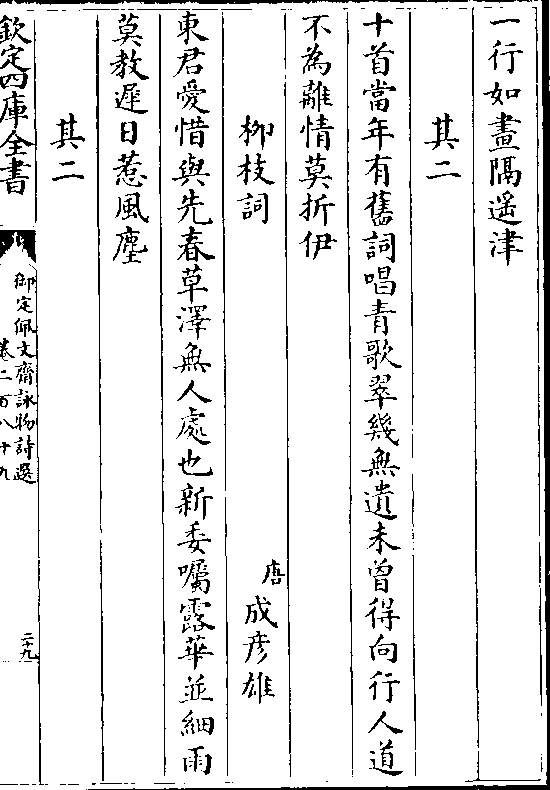 一行如畫隔遥津
其二
十首當年有舊詞唱青歌翠幾無遺未曾得向行人道
不為離情莫折伊
柳枝詞
唐 成彦雄
東君愛惜與先春草澤無人處也新委囑露華並細雨
莫教遲日惹風塵
其二
欽定四庫全書
御定佩文齋詠物詩選
卷二百八十九
二十九